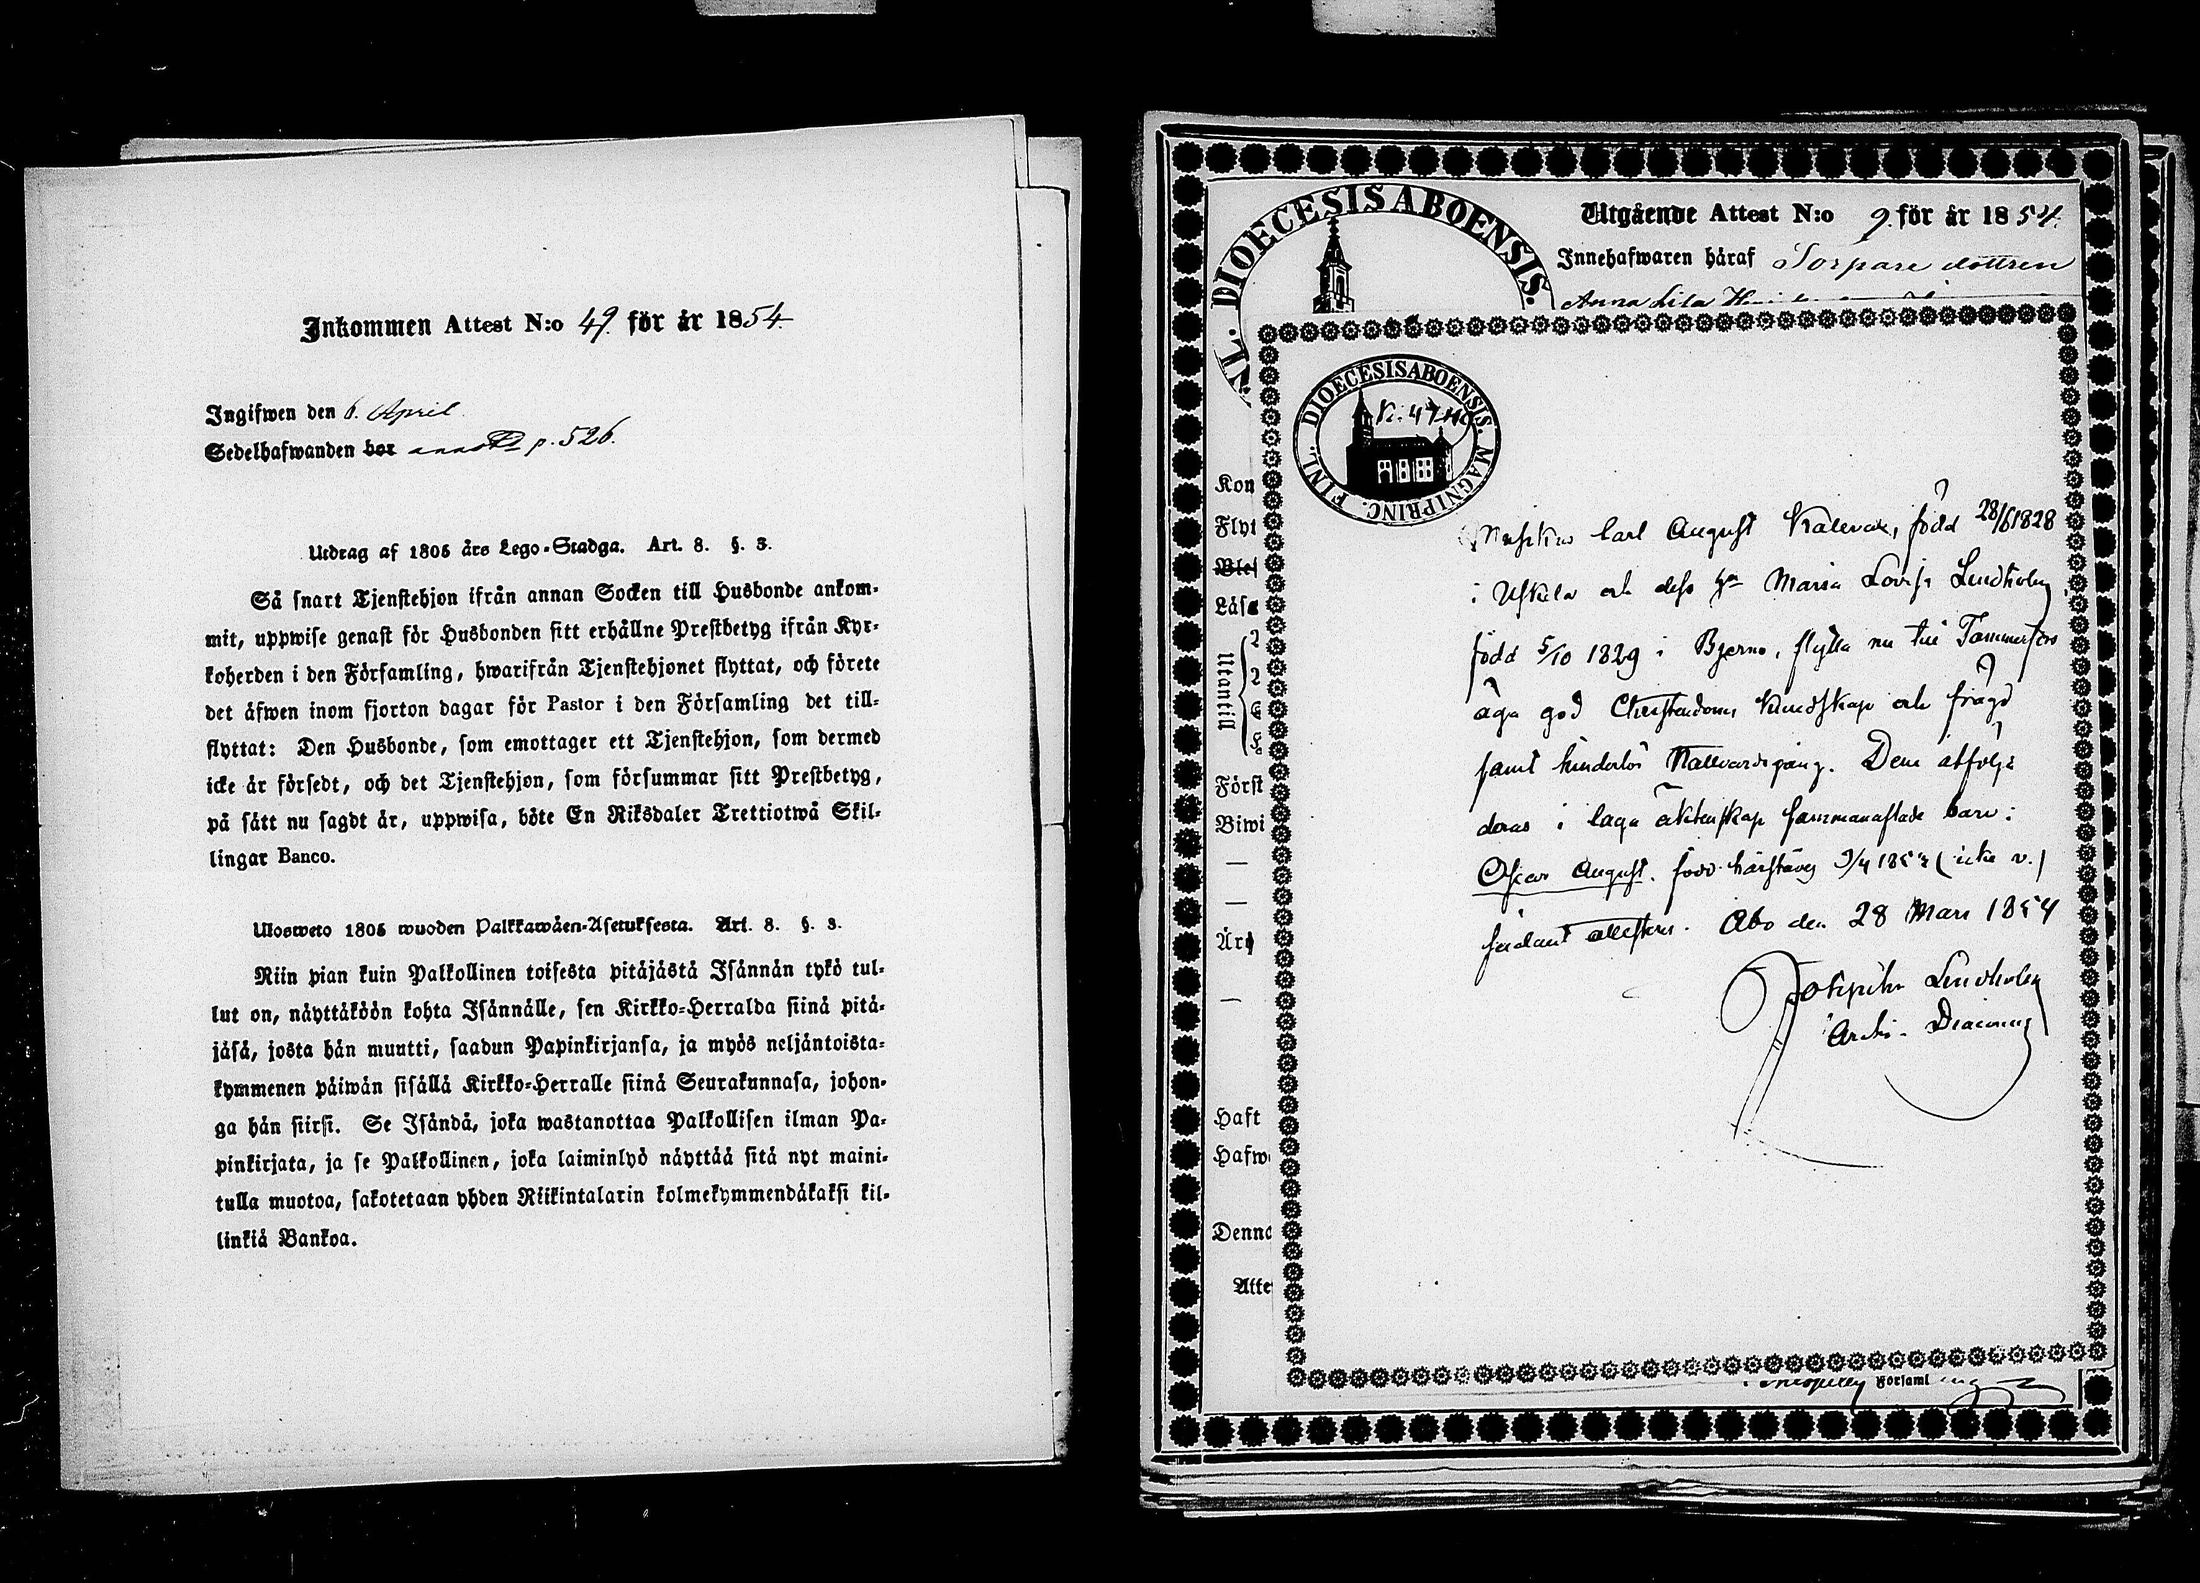 Inkommen Attest N:o 49. för år 1854.
Ingifwen den 6. April.
Sedelhafwanden bor p. 526.
Utdrag af 1805 års Lego-Stadga. Art. 8. §. 3.
Så snart Tjenstehjon ifrån annan Socken till Husbonde ankom-
mit, uppwise genast för Husbonden sitt erhållne Prestbetyg ifrån Kyr-
koherden i den Församling, hwarifrån Tjenstehjonet flyttat, och förete
det åfwen inom fjorton dagar för Pastor i den Församling det till-
flyttat: Den Husbonde, som emottager ett Tjenstehjon, som dermed
icke är försedt, och det Tjenstehjon, som försummar sitt Prestbetyg,
på sätt nu sagdt är, uppwisa, böte En Riksdaler Trettiotwå Skil-
lingar Banco.
Ulosweto 1805 wuoden Palkkawäen-Asetuksesta. Art. 8. §. 3.
Niin pian kuin Palkollinen toisesta pitäjästä Isännän tykö tul-
lut on, näyttäköön kohta Isännälle, sen Kirkko-Herralda siinä pitä-
jäsä, josta hän muutti, saadun Papinkirjansa, ja myös neljäntoista-
kymmenen päiwän sisällä Kirkko-Herralle siinä Seurakunnasa, johon-
ga hän siirsi. Se Isändä, joka wastanottaa Palkollisen ilman Pa-
pinkirjata, ja se Palkollinen, joka laiminlyö näyttää sitä nyt maini-
tulla muotoa, sakotetaan yhden Riikintalarin kolmekymmendäkaksi kil-
linkiä Bankoa.
DIOECESIS ABOENSIS.
Utgående Attest N:o 9. för år 1854.
Innehafwaren häraf Sorpare dottren
Anna Lisa
DIOECESIS ABOENSIS. MAGNI PRINC. FINL.
Kon
Flyt
Läse
Utantill
Först
Biwi
Haft
Hafwe
Denna
Atte
Carl August född 28/6 1828
i Uskela och dess Maria Lovisa Lindholm
född 5/10 1829 i Bjerno, flytta nu till Tammerfors
äga god Christendoms kundskap och frägd
samt hinderlös Nattvardsgång. Dem åtfölje
deras i laga äktenskap sammanaflade barn:
Oscar August. född härstädes (icke v.)
sådant attesteras. Åbo den 28 Mars 1854
Lindholm
Archi-Diaconus
Församl